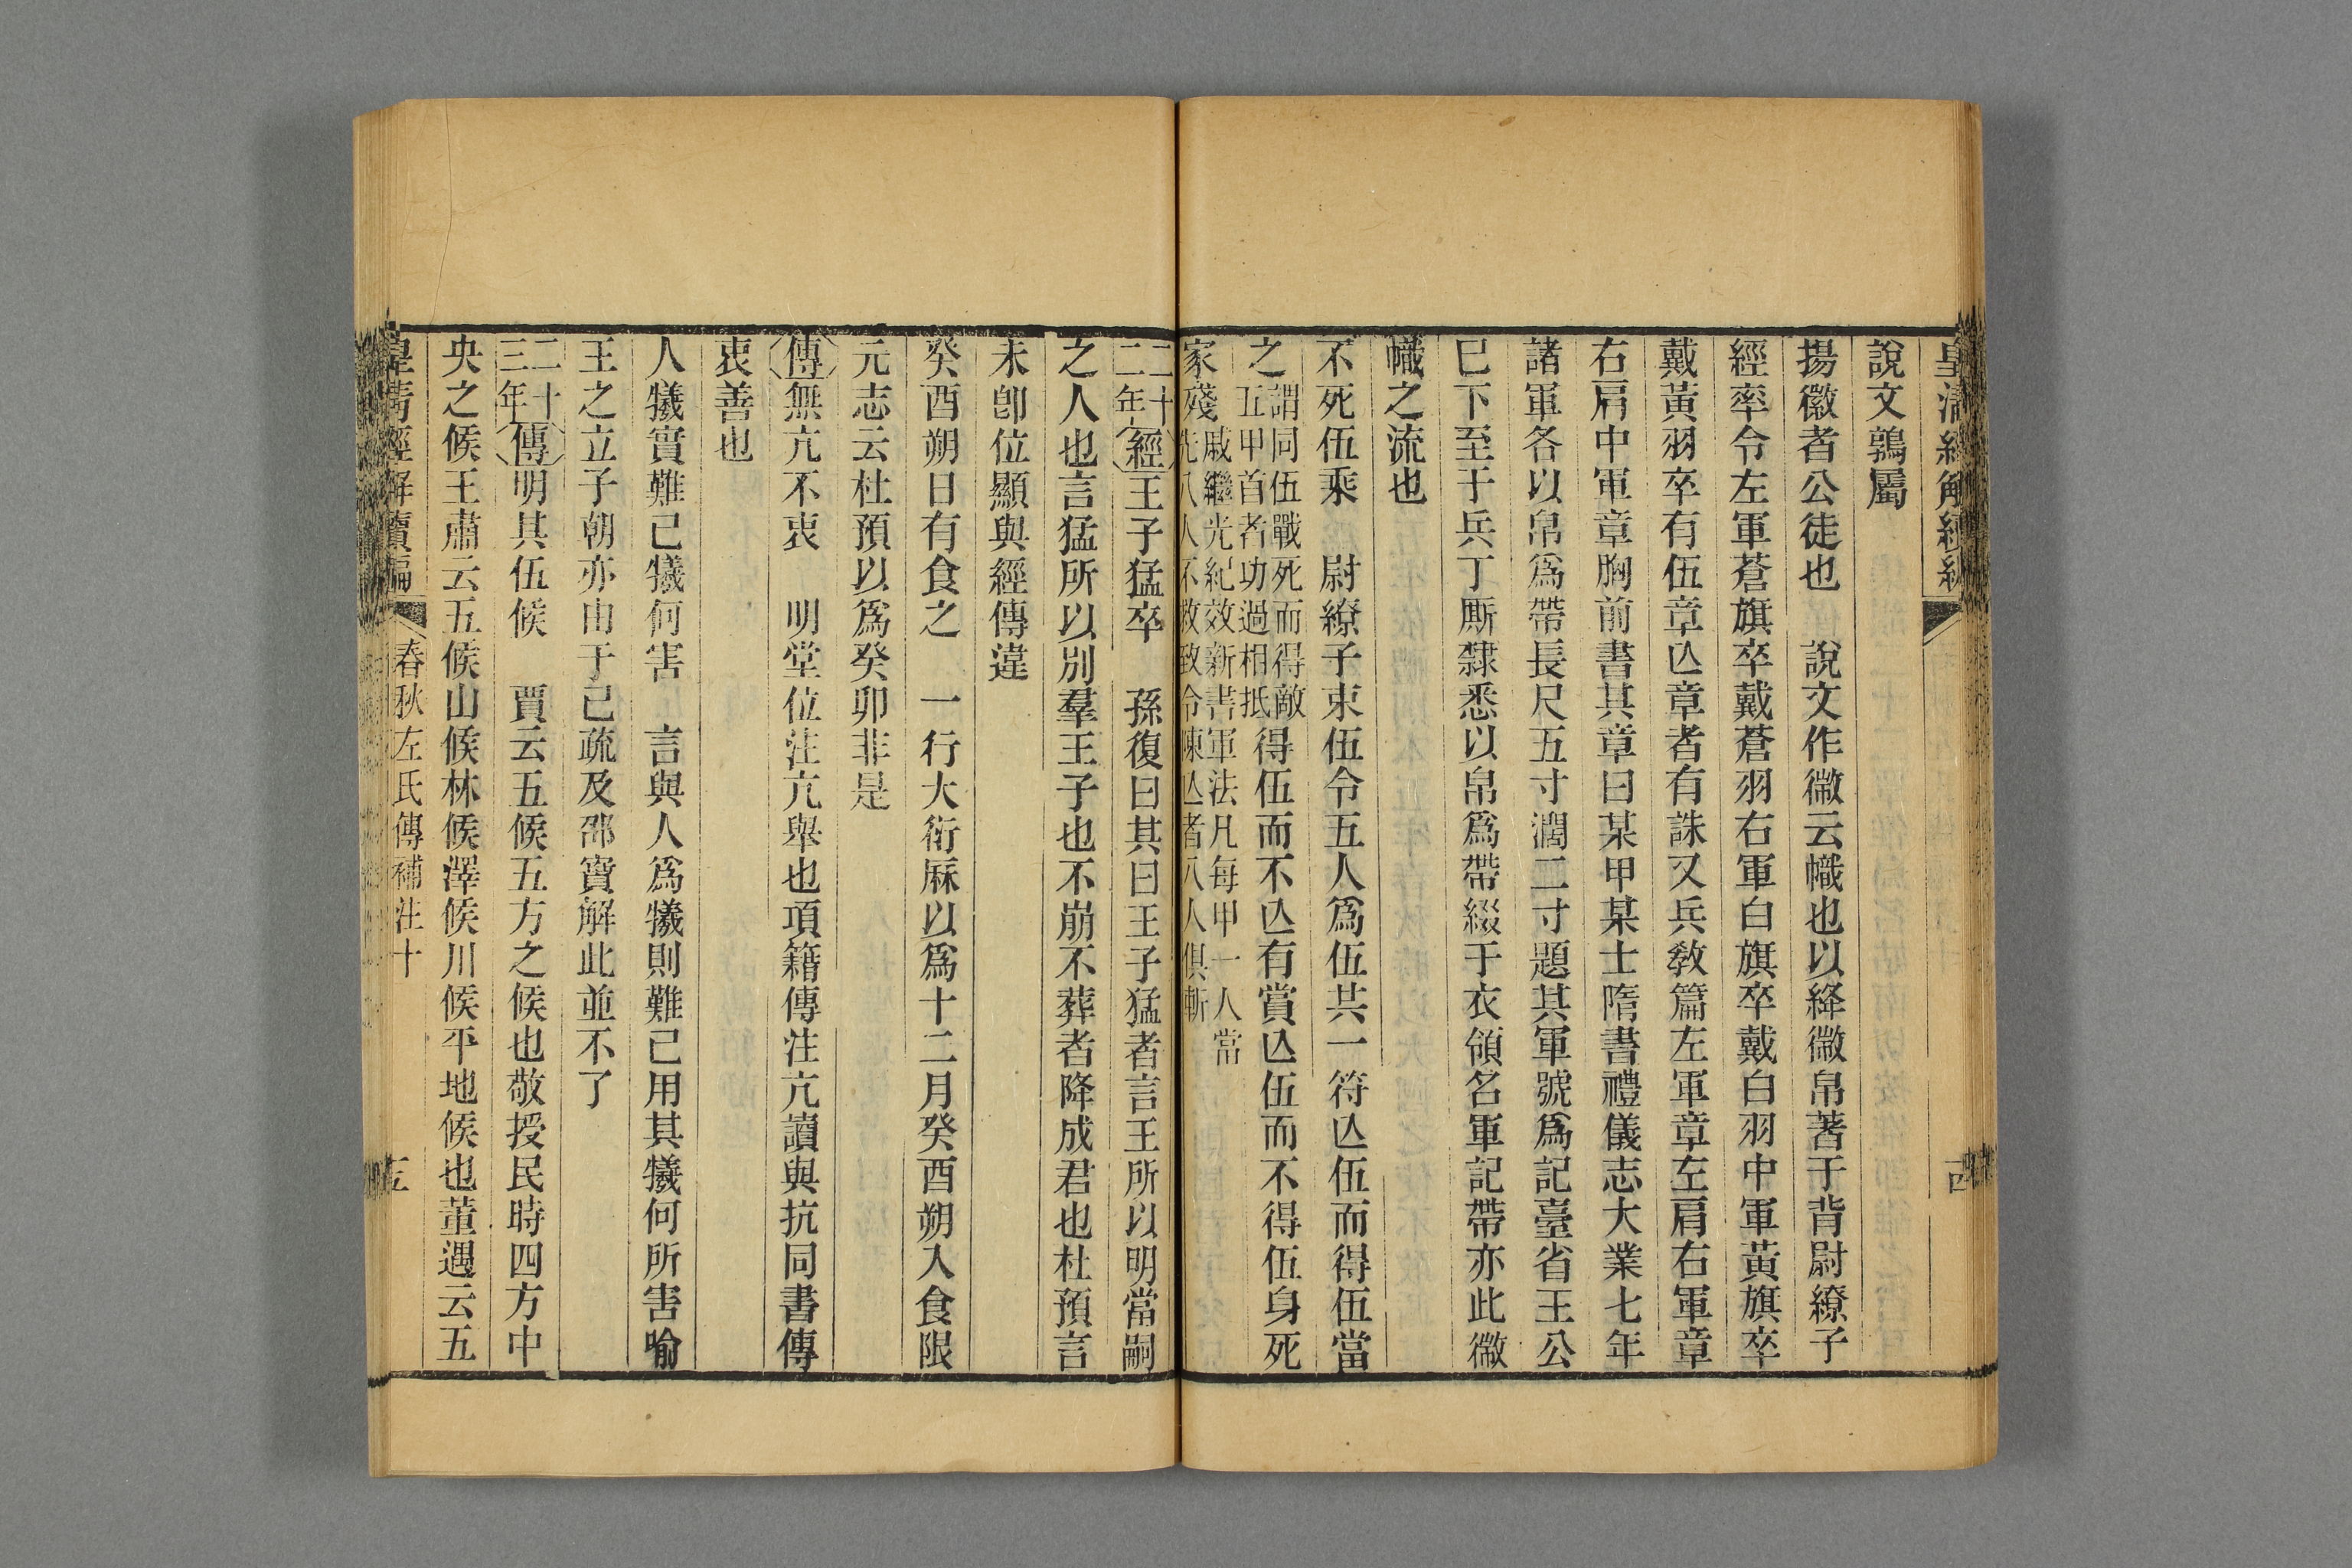 說文鶉屬
揚徽者公徒也　說文作微云幟也以絳微帛著于背尉繚子
經卒令左軍蒼旗卒戴蒼羽右軍白旗卒戴白羽中軍黃旗卒
戴黃羽卒有伍章亾章者有誅又兵教篇左軍章左肩右軍章
右肩中軍章胸前書其章曰某甲某士隋書禮儀志大業七年
諸軍各以帛爲帶長尺五寸濶二寸題其軍號爲記臺省王公
已下至于兵丁厮隸悉以帛爲帶綴于衣領名軍記帶亦此微
幟之流也
不死伍乘　尉繚子束伍令五人爲伍共一符亾伍而得伍當
之謂同伍戰死而得敵五甲首者功過相抵得伍而不亾有賞亾伍而不得伍身死
家殘戚繼光紀效新書軍法凡每甲一人當先八人不救致令陳亾者八人俱斬
二十二年經王子猛卒　孫復曰其曰王子猛者言王所以明當嗣
之人也言猛所以別羣王子也不崩不葬者降成君也杜預言
未卽位顯與經傳違
癸酉朔日有食之　一行大衍厤以爲十二月癸酉朔入食限
元志云杜預以爲癸卯非是
傳無亢不衷　明堂位注亢舉也項籍傳注亢讀與抗同書傳
衷善也
人犧實難己犧何害　言與人爲犧則難己用其犧何所害喻
王之立子朝亦由于己疏及邵寶解此並不了
二十三年傳明其伍候　賈云五候五方之候也敬授民時四方中
央之候王肅云五候山候林候澤候川候平地候也董遇云五
皇淸經解續編
春秋左氏傳補注十